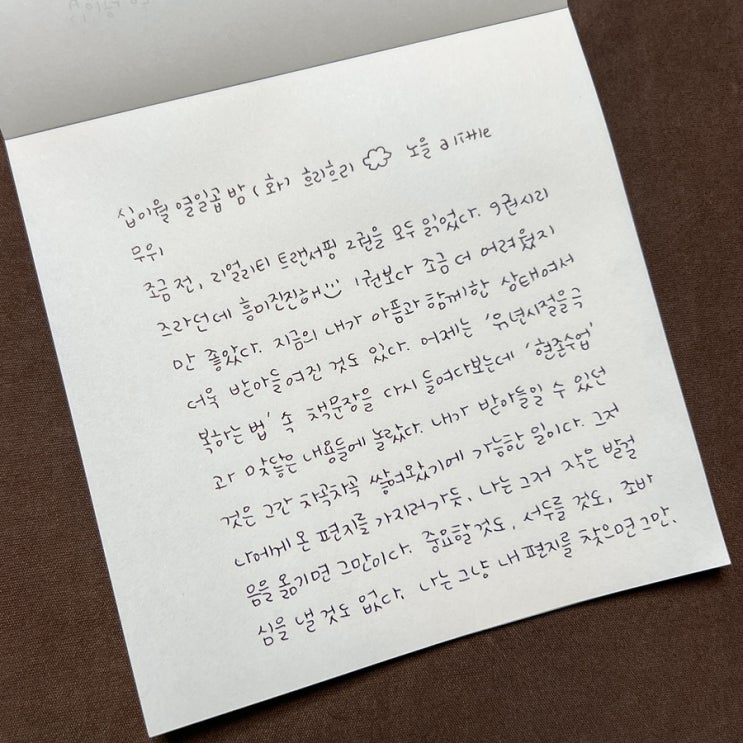 십이월 열일곱 밤 (화) 흐리흐리 노을 a little
무위
조금 전, 리얼리티 트랜서핑 2권을 모두 읽었다. 9권시리
즈라던데 흥미진진해 1권보다 조금 더 어려웠지
만 좋았다. 지금의 내가 아픔과 함께한 상태여서
더욱 받아들여진 것도 있다. 어제는 '유년시절을극
복하는 법' 속 책문장을 다시 들여다보는데 '현존수업'
과 맞닿은 내용들에 놀랐다. 내가 받아들일 수 있던
것은 그간 차곡차곡 쌓여왔기에 가능한 일이다. 그저
나에게 온 편지를 가지러가듯, 나는 그저 작은 발걸
음을 옮기면 그만이다. 중요할것도, 서두를 것도, 조바
심을 낼 것도 없다. 나는 그냥 내 편지를 찾으면 그만.